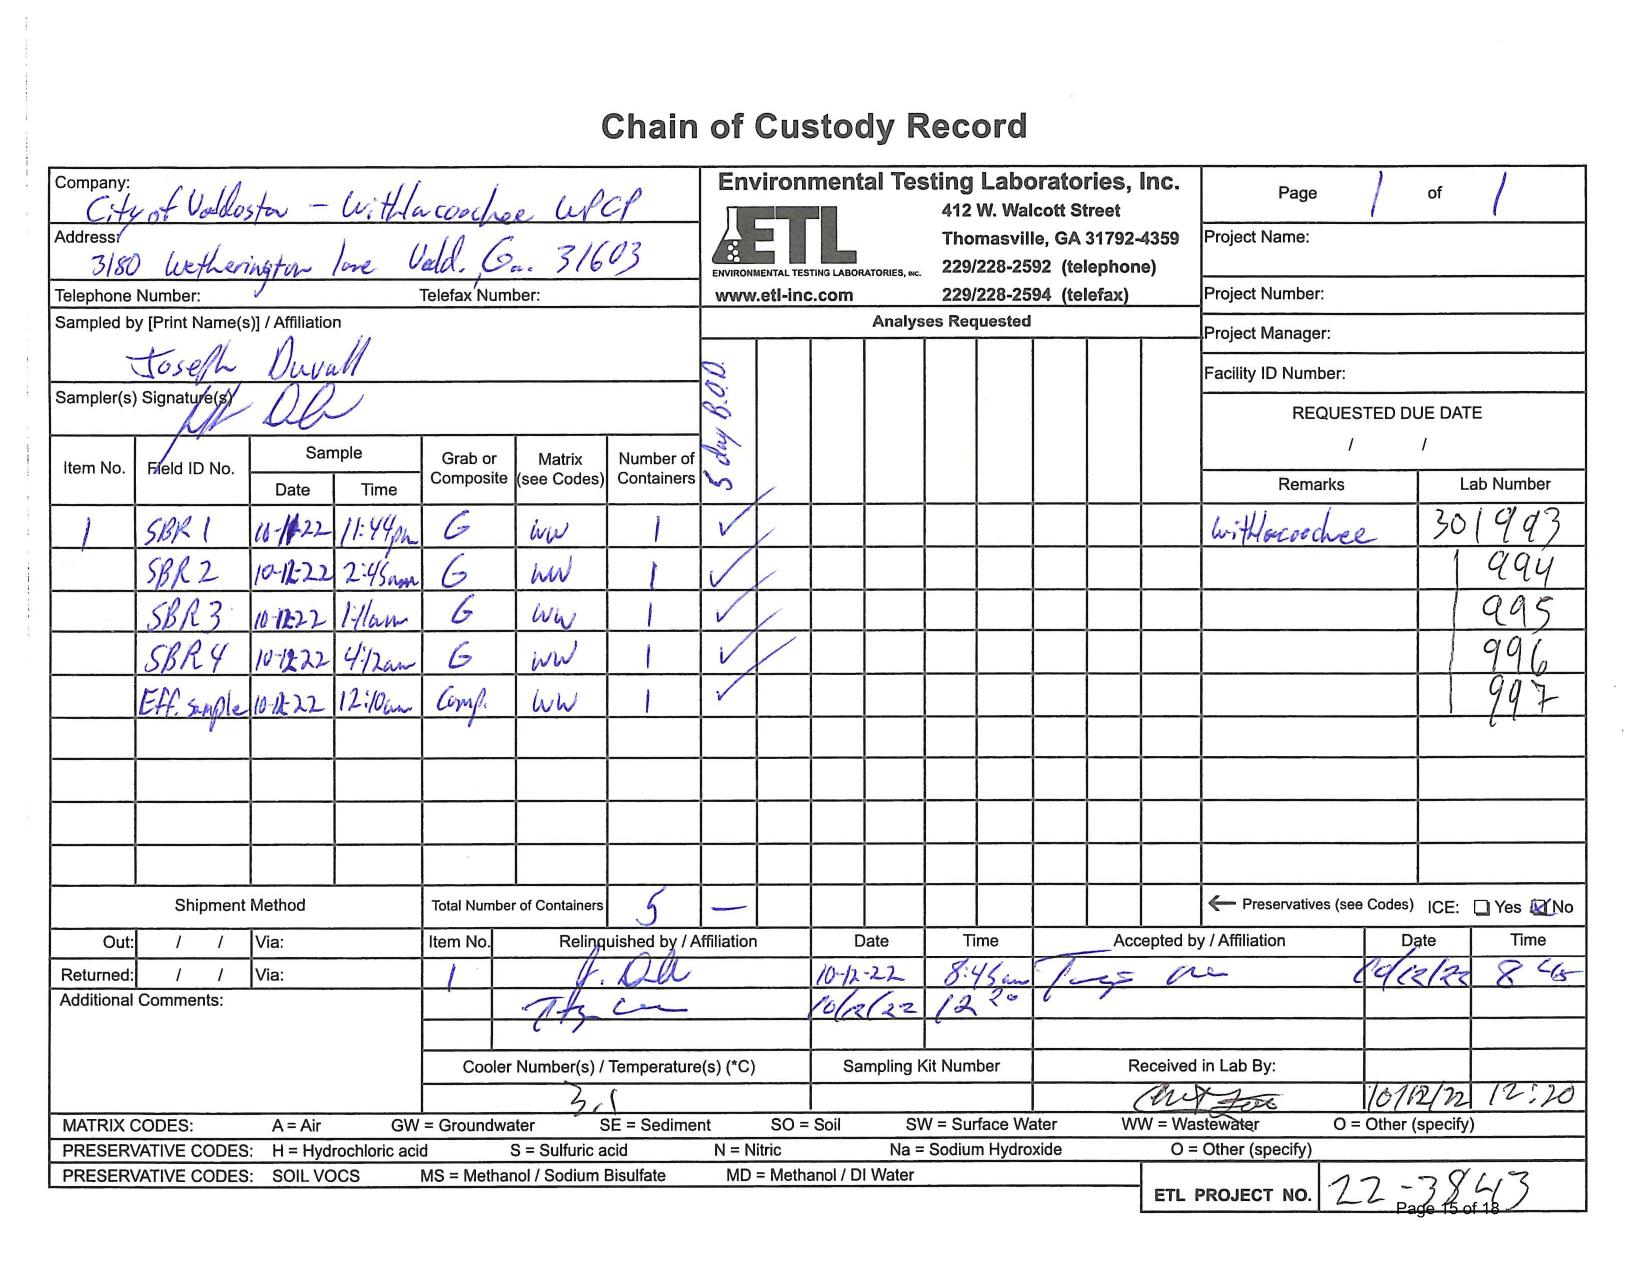 Chain of Custody Record
Company:
City of Valdosta - Withlacoochee WPCP
Address:
3180 Wetherington lane Vald. Ga. 31603
Telephone Number: Telefax Number:
Sampled by [Print Name(s)] / Affiliation
Joseph Duvall
Sampler(s) Signature(s)
Environmental Testing Laboratories, Inc.
ETL
ENVIRONMENTAL TESTING LABORATORIES, INC.
www.etl-inc.com
412 W. Walcott Street
Thomasville, GA 31792-4359
229/228-2592 (telephone)
229/228-2594 (telefax)
Analyses Requested
5 day B.O.D.
Page 1 of 1
Project Name:
Project Number:
Project Manager:
Facility ID Number:
REQUESTED DUE DATE
/ /
Item No. Field ID No. Sample Date Time Grab or Composite Matrix (see Codes) Number of Containers Remarks Lab Number
1 SBR 1 10-11-22 11:44pm G WW 1 ✓ Withlacoochee 301993
SBR 2 10-12-22 2:45am G WW 1 ✓ 994
SBR 3 10-12-22 1:11am G WW 1 ✓ 995
SBR 4 10-12-22 4:12am G WW 1 ✓ 996
Eff. sample 10-12-22 12:10am Comp. WW 1 ✓ 997
Shipment Method Total Number of Containers 5 — ← Preservatives (see Codes) ICE: ☐ Yes ☑ No
Out: / / Via: Item No. Relinquished by / Affiliation Date Time Accepted by / Affiliation Date Time
Returned: / / Via: 1 10-12-22 8:45am 10/12/22 8 45
Additional Comments: 10/12/22 12 20
Cooler Number(s) / Temperature(s) (°C) Sampling Kit Number Received in Lab By:
3.1 10/12/22 12:20
MATRIX CODES: A = Air GW = Groundwater SE = Sediment SO = Soil SW = Surface Water WW = Wastewater O = Other (specify)
PRESERVATIVE CODES: H = Hydrochloric acid S = Sulfuric acid N = Nitric Na = Sodium Hydroxide O = Other (specify)
PRESERVATIVE CODES: SOIL VOCS MS = Methanol / Sodium Bisulfate MD = Methanol / DI Water
ETL PROJECT NO. 22-3843
Page 15 of 18